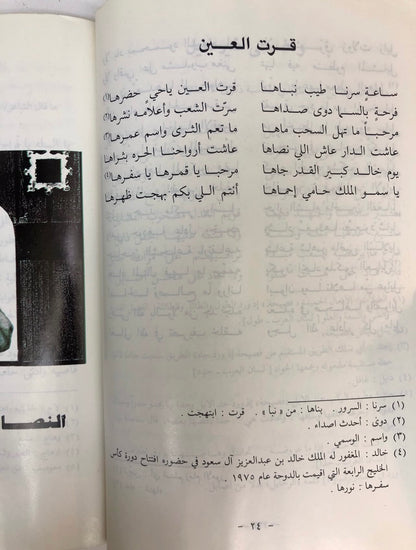 قرت العين
ساعة سرنا طيب نباها قرت العين ياحي حضرها (١)
فرحةٍ بالسما دوى صداها سرّت الشعب وأعلامه نشرها (٢)
مرحباً ما تهل السحب ماها ما تعم الثرى واسم عمرها (٣)
عاشت الدار عاش اللي نصاها عاشت أرواحنا الحره بثراها
يوم خالد كبير القدر جاها مرحبا يا قمرها يا سفرها (٤)
يا سمو الملك حامي إحماها أنتم اللي بكم بهجت ظهرها
(١) سرنا : السرور . بناها : من « نبأ » . قرت : ابتهجت .
(٢) دوىّ : أحدث اصداء .
(٣) واسم : الوسمي .
(٤) خالد : المغفور له الملك خالد بن عبدالعزيز آل سعود في حضوره افتتاح دورة كأس
الخليج الرابعة التي اقيمت بالدوحة عام ١٩٧٥ .
سفرها : نورها .
- ٢٤ -
النصا